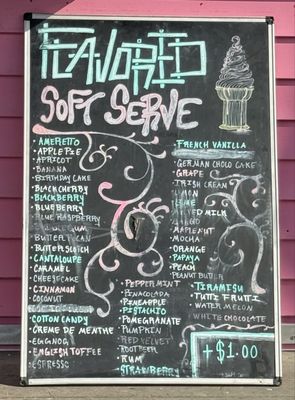 FLAVORED
SOFT SERVE
AMERETTO
APPLE PIE
APRICOT
BANANA
BIRTHDAY CAKE
BLACK CHERRY
BLACKBERRY
BLUEBERRY
BLUE RASPBERRY
BUTTERSCOTCH
CANTALOUPE
CARAMEL
CHEESECAKE
CINNAMON
COCONUT
COTTON CANDY
CREME DE MENTHE
EGGNOG
ENGLISH TOFFEE
ESPRESSO
PEPPERMINT
PINACOLADA
PINEAPPLE
PISTACHIO
POMEGRANATE
PUMPKIN
RED VELVET
ROOT BEER
RUM
STRAWBERRY
FRENCH VANILLA
GERMAN CHOCO CAKE
GRAPE
IRISH CREAM
LEMON
LIME
MANGO
MAPLENUT
MOCHA
ORANGE
PAPAYA
PEACH
PEANUT BUTTER
TIRAMISU
TUTTI FRUTTI
WATER MELON
WHITE CHOCOLATE
+$1.00